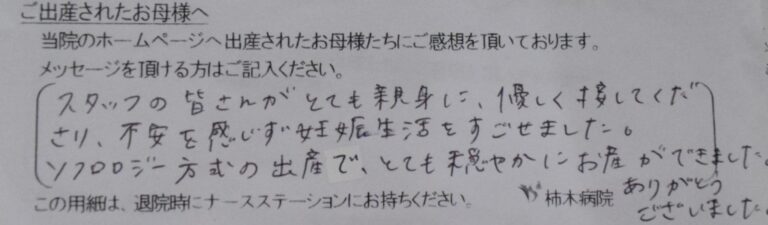 ご出産されたお母様へ
当院のホームページへ出産されたお母様たちにご感想を頂いております。
メッセージを頂ける方はご記入ください。
スタッフの皆さんがとても親身に、優しく接してくだ
さり、不安を感じず妊娠生活をすごせました。
ソフロロジー方式の出産で、とても穏やかにお産ができました。
ありがとう
ございました。
この用紙は、退院時にナースステーションにお持ちください。
柿木病院